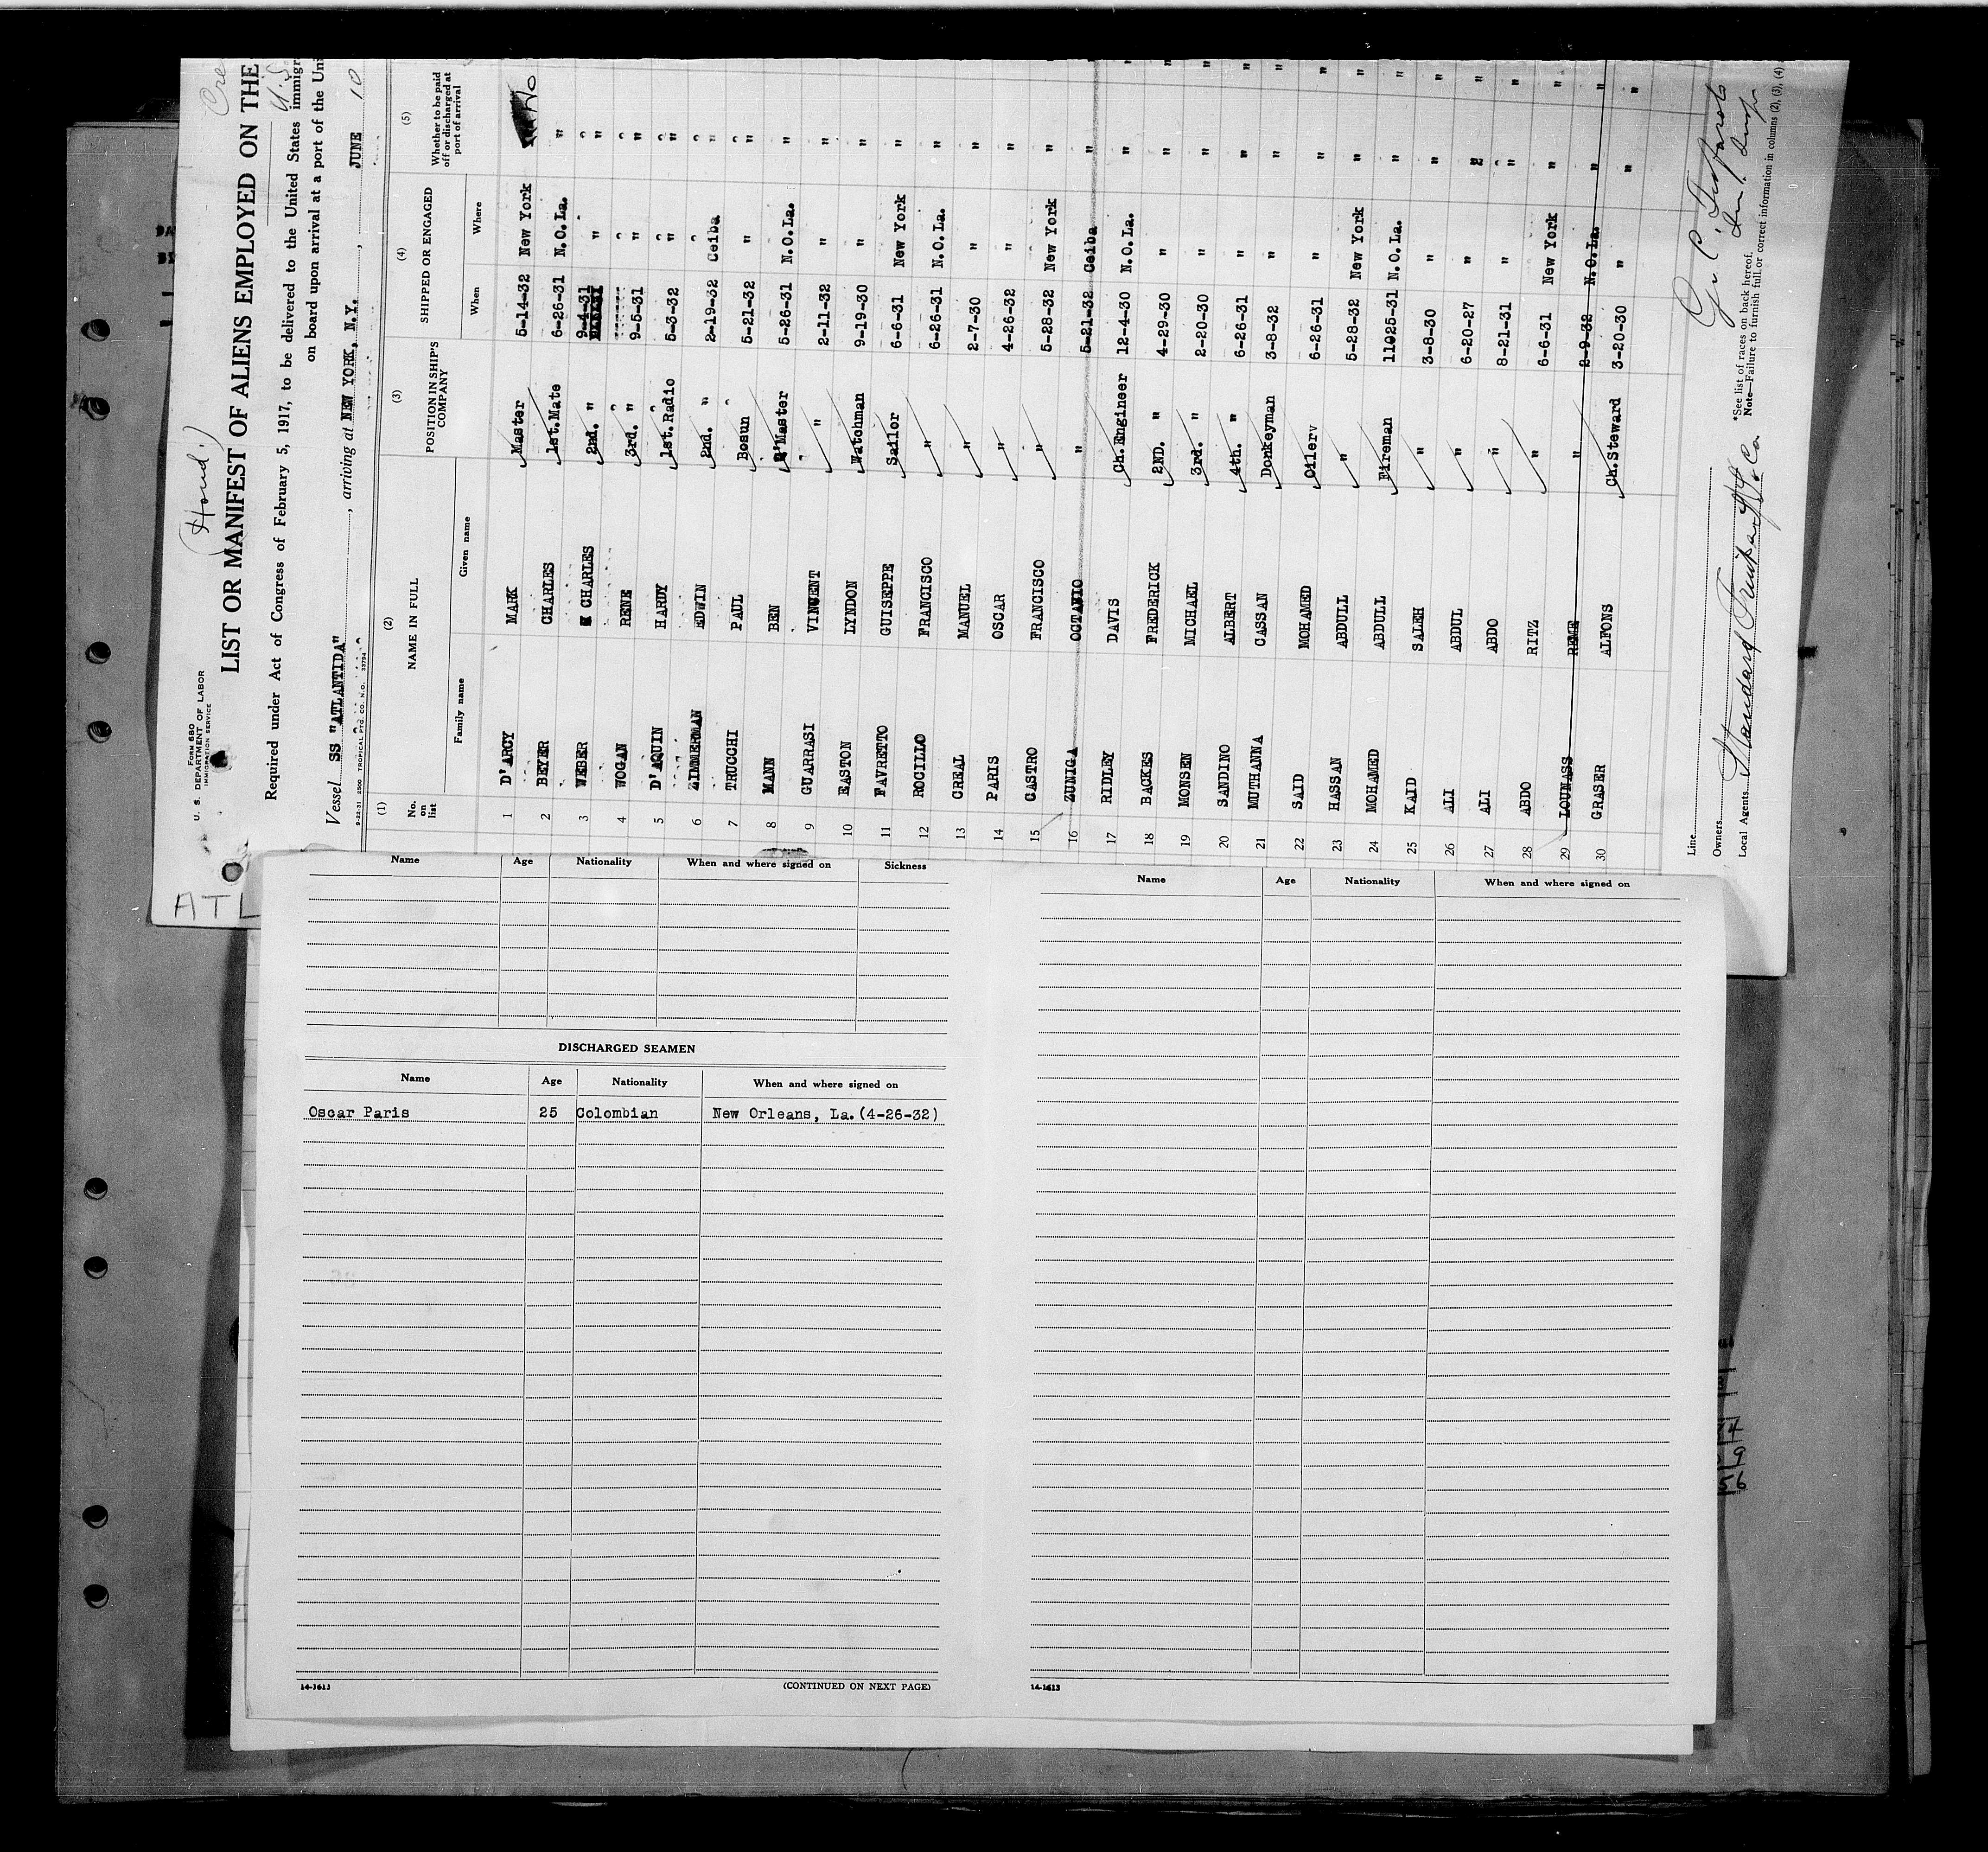 (Hond.)
FORM 680
U. S. DEPARTMENT OF LABOR
IMMIGRATION SERVICE
LIST OR MANIFEST OF ALIENS EMPLOYED ON THE
Required under Act of Congress of February 5, 1917, to be delivered to the United States immigr
on board upon arrival at a port of the Uni
Vessel SS "ATLANTIDA", arriving at NEW YORK, N.Y., JUNE 10
9-22-31 2500 TROPICAL PTG. CO. N.O. 23794
(1) (2) (3) (4) (5)
No. on list NAME IN FULL POSITION IN SHIP'S COMPANY SHIPPED OR ENGAGED Whether to be paid off or discharged at port of arrival
Family name Given name When Where
1 D'ARCY MARK Master 5-14-32 New York No
2 BEYER CHARLES 1st.Mate 6-26-31 N.O.La. "
3 WEBER CHARLES 2nd. " 9-4-31 " "
4 WOGAN RENE 3rd. " 9-5-31 " "
5 D'AQUIN HARDY 1st.Radio 5-3-32 " "
6 ZIMMERMAN EDWIN 2nd. " 2-19-32 Ceiba "
7 TRUCCHI PAUL Bosun 5-21-32 " "
8 MANN BEN Q'Master 5-26-31 N.O.La. "
9 GUARRASI VINCENT " 2-11-32 " "
10 EASTON LYNDON Watchman 9-19-30 " "
11 FAVRETTO GUISEPPE Sailor 6-6-31 New York "
12 ROCILLO FRANCISCO " 6-26-31 N.O.La. "
13 CREAL MANUEL " 2-7-30 " "
14 PARIS OSCAR " 4-26-32 " "
15 CASTRO FRANCISCO " 5-28-32 New York "
16 ZUNIGA OCTABIO " 5-21-32 Ceiba "
17 RIDLEY DAVIS Ch.Engineer 12-4-30 N.O.La. "
18 BACKES FREDERICK 2ND. " 4-29-30 " "
19 MONSEN MICHAEL 3rd. " 2-20-30 " "
20 SANDINO ALBERT 4th. " 6-26-31 " "
21 MUTHANNA CASSAN Donkeyman 3-8-32 " "
22 SAID MOHAMED Oilerv 6-26-31 " "
23 HASSAN ABDULL " 5-28-32 New York "
24 MOHAMED ABDULL Fireman 11025-31 N.O.La. "
25 KAID SALEH " 3-8-30 " "
26 ALI ABDUL " 6-20-27 " "
27 ALI ABDO " 8-21-31 " "
28 ABDO RITZ " 6-6-31 New York "
29 LOUNASS REME " 2-9-32 N.O.La. "
30 GRASER ALFONS Ch.Steward 3-20-30 " "
Line
Owners
Local Agents Standard Fruit
*See list of races on back hereof.
Note—Failure to furnish full or correct information in columns (2), (3), (4)
ATL
Name Age Nationality When and where signed on Sickness
DISCHARGED SEAMEN
Name Age Nationality When and where signed on
Oscar Paris 25 Colombian New Orleans, La.(4-26-32)
14-1613 (CONTINUED ON NEXT PAGE)
Name Age Nationality When and where signed on
14-1613